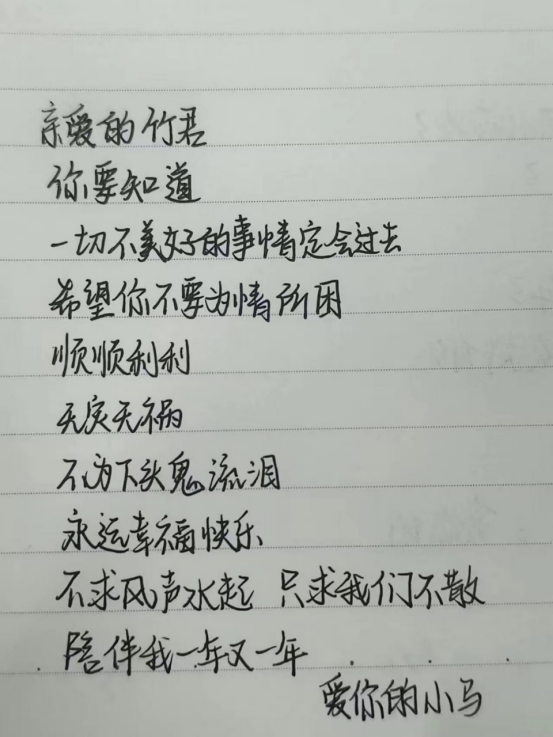 亲爱的竹君
你要知道
一切不美好的事情定会过去
希望你不要为情所困
顺顺利利
无灾无祸
不为下头鬼流泪
永远幸福快乐
不求风声水起 只求我们不散
陪伴我一年又一年
爱你的小马